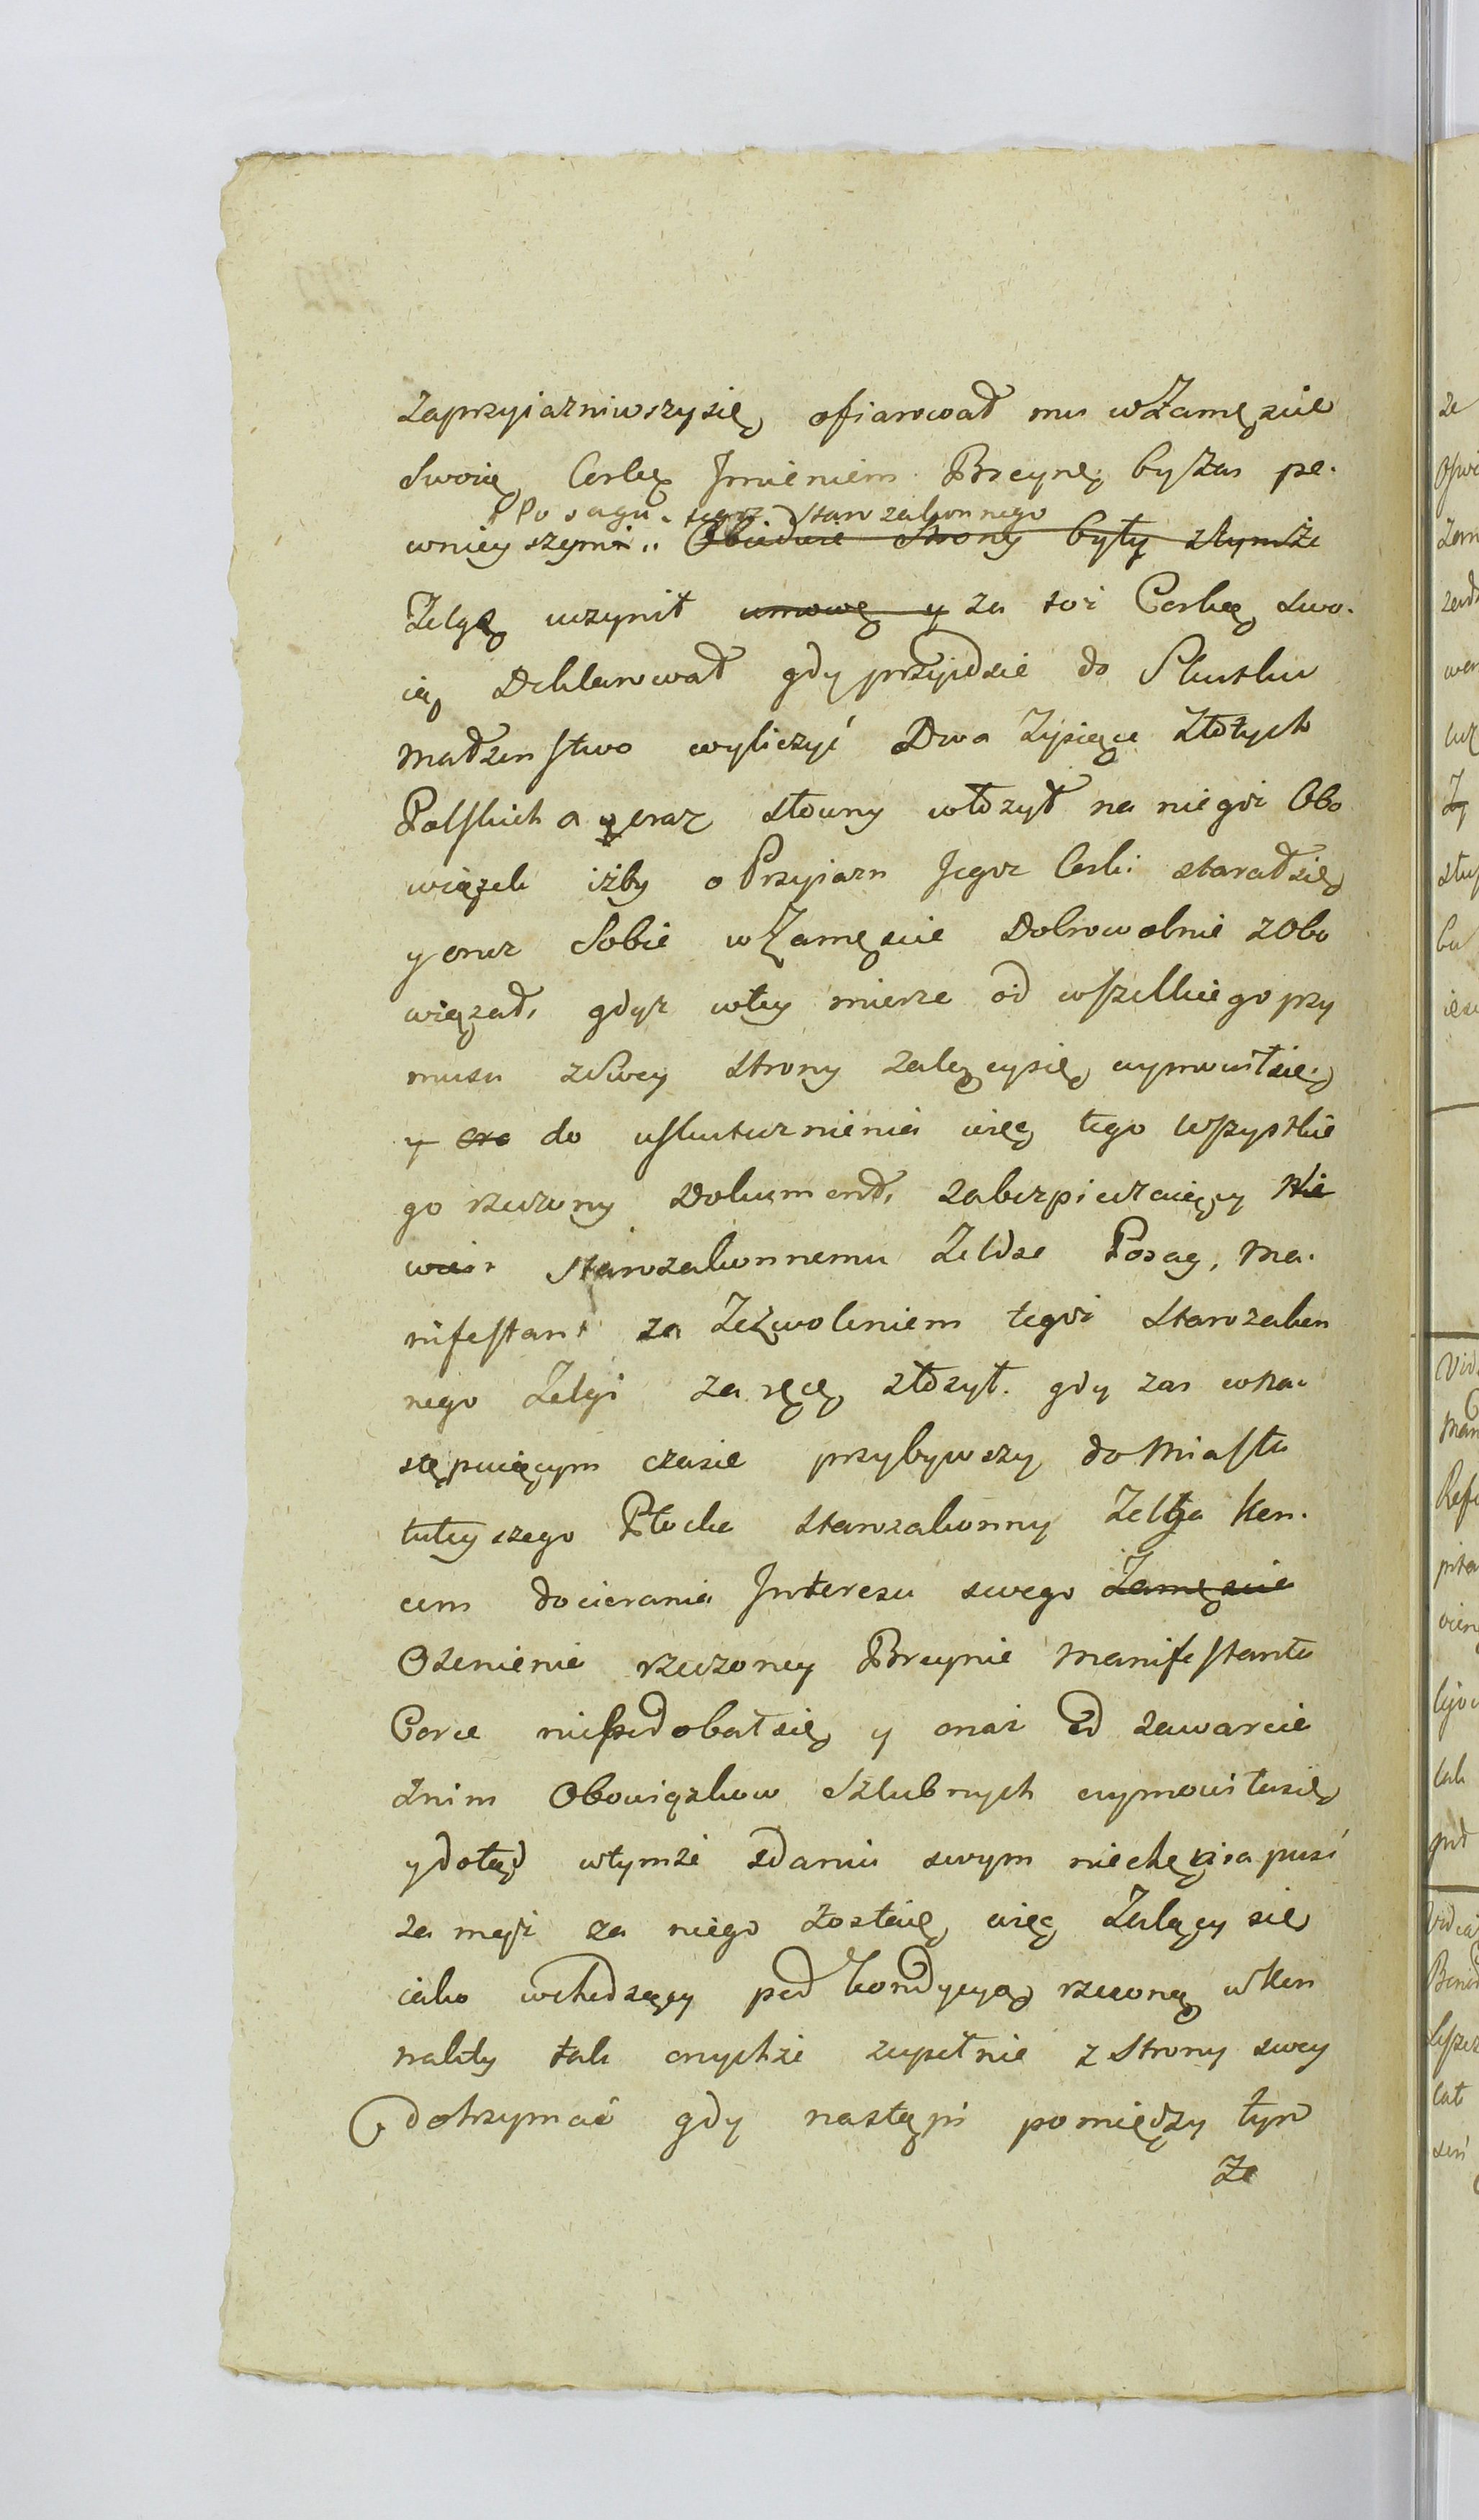 zaprzyiazniwszysię ofiarował mu wZamęscie
Swoię Corkę Jmieniem Breynę, byZas pe.
Posagu. tegoz Starozakonnego
wnieyszym.. Obiedwie Strony były ztymże
Zelgę uczynił umowę y za toż Corkę swo.
ią Deklarował gdy przyidzie do Skutku
Małzenstwo wyliczyć Dwa Tysiące Złotych
Polskich a yoraz słowny włozył na niegoz Obo
wiązek iżby o Przyiazn Jegoz Corki starał się
y onez Sobie w Zamęscie Dobrowolnie zObo
wiązał, gdyz wtey mierze od wszelkiego przy
musu zSwey Strony zalącysię wymowiłsię
y do uskutecznienia więc tego wszystkie
go rzeczony Dokument, zabezpieczaięcy
Starozakonnemu Zeldze Posag, Ma.
nifestant za Zezwoleniem tegoż Starozakon
nego Zelgi za ręcę złozył. gdy zas wna.
stępuięcym czasie przybywszy do Miasta
tuteyszego Płocka Starozakonny Zelga Kon.
cem docierania Jnteresu swego Zamęscie
Ozenienie rzeczoney Breynie Manifestanta
Corce niepodobał się y onaż od zawarcie
znim Obowiązkow Szlubnych wymowiłasię
ydotąd wtymże zdaniu swym niechęci a pusc
za mąż za niego zostaię, więc Zalący się
iako wchodzący pod kondycyą rzeczoną wKon
nakty tak onychże zupełnie z Strony swey
dotrzymać gdy nastąpi pomiędzy tym
Ze